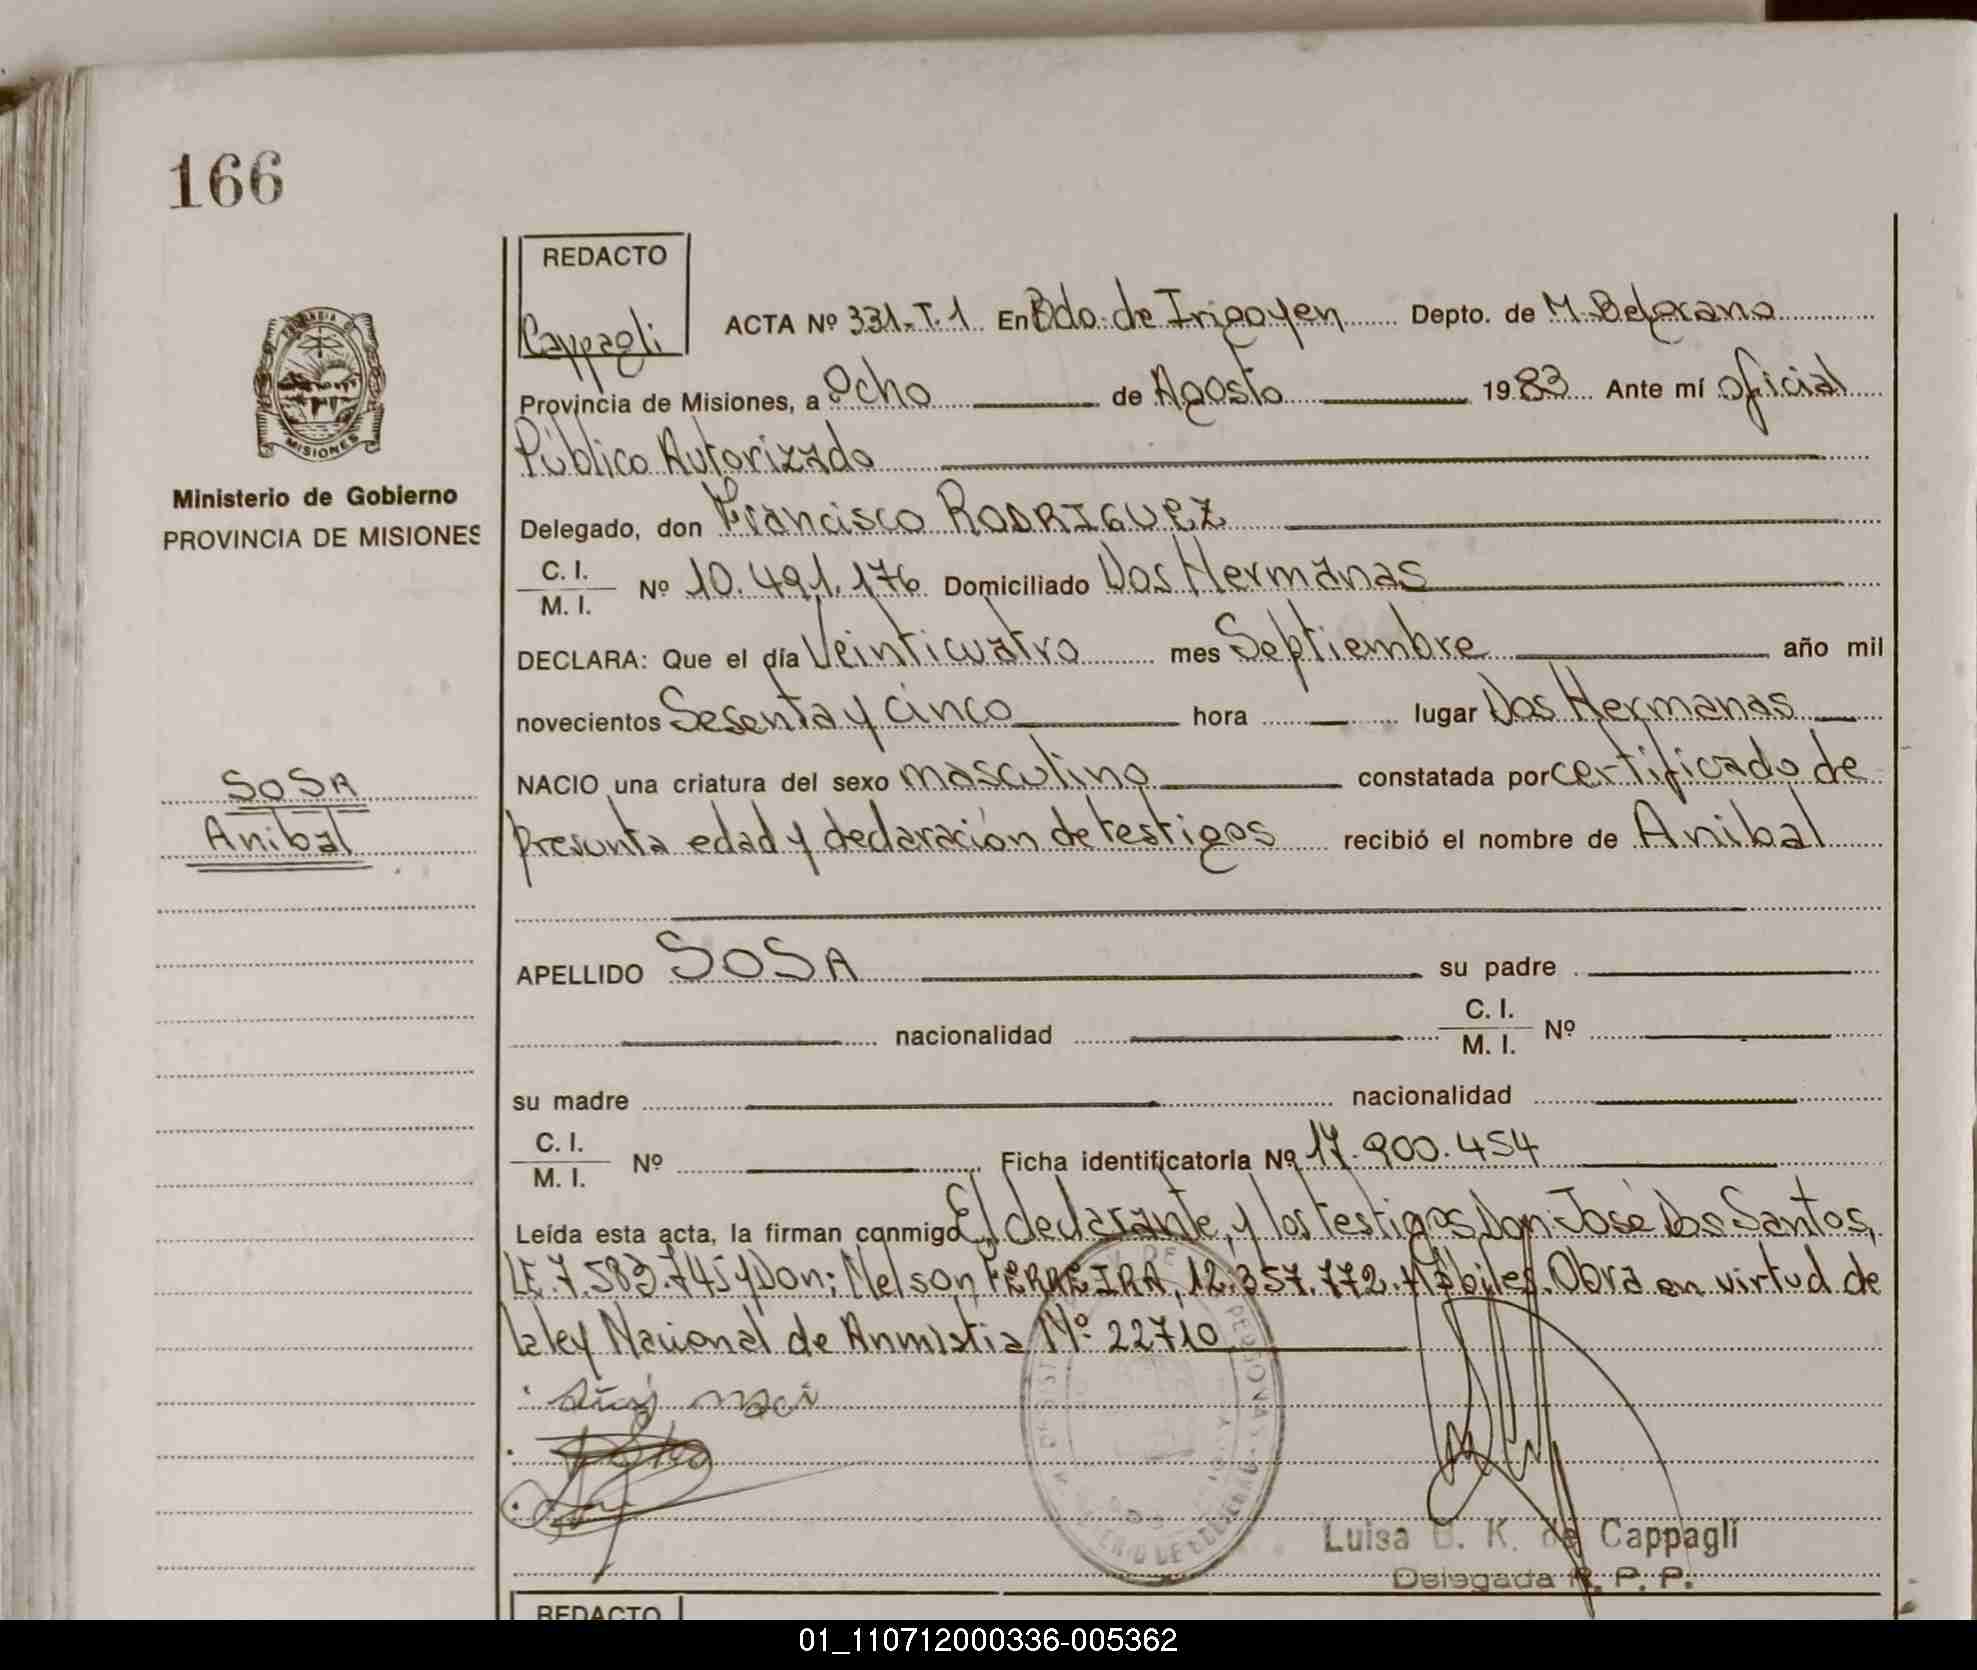 166
REDACTO
Cappagli
ACTA Nº 331-T.1 En Bdo. de Irigoyen Depto. de M. Belgrano
Provincia de Misiones, a Ocho de Agosto 1983 Ante mí oficial
Público Autorizado
Delegado, don Francisco RODRIGUEZ
C. I.
M. I. Nº 10.491.176 Domiciliado Dos Hermanas
DECLARA: Que el día Veinticuatro mes Septiembre año mil
novecientos Sesenta y cinco hora lugar Dos Hermanas
NACIO una criatura del sexo masculino constatada por certificado de
presunta edad y declaración de testigos recibió el nombre de Anibal
APELLIDO SOSA su padre
nacionalidad C. I.
M. I. Nº
su madre nacionalidad
C. I.
M. I. Nº Ficha identificatoria Nº 17.900.454
Leída esta acta, la firman conmigo El declarante, y los testigos Don: José Dos Santos,
LE.7.583.745 y Don: Nelson FERREIRA, 12.357.772. Hábiles. Obra en virtud de
la ley Nacional de Anmistia Nº 22710
MISIONES
Ministerio de Gobierno
PROVINCIA DE MISIONES
SOSA
Anibal
Luisa B. K. de Cappagli
Delegada R. P. P.
REDACTO
01_110712000336-005362